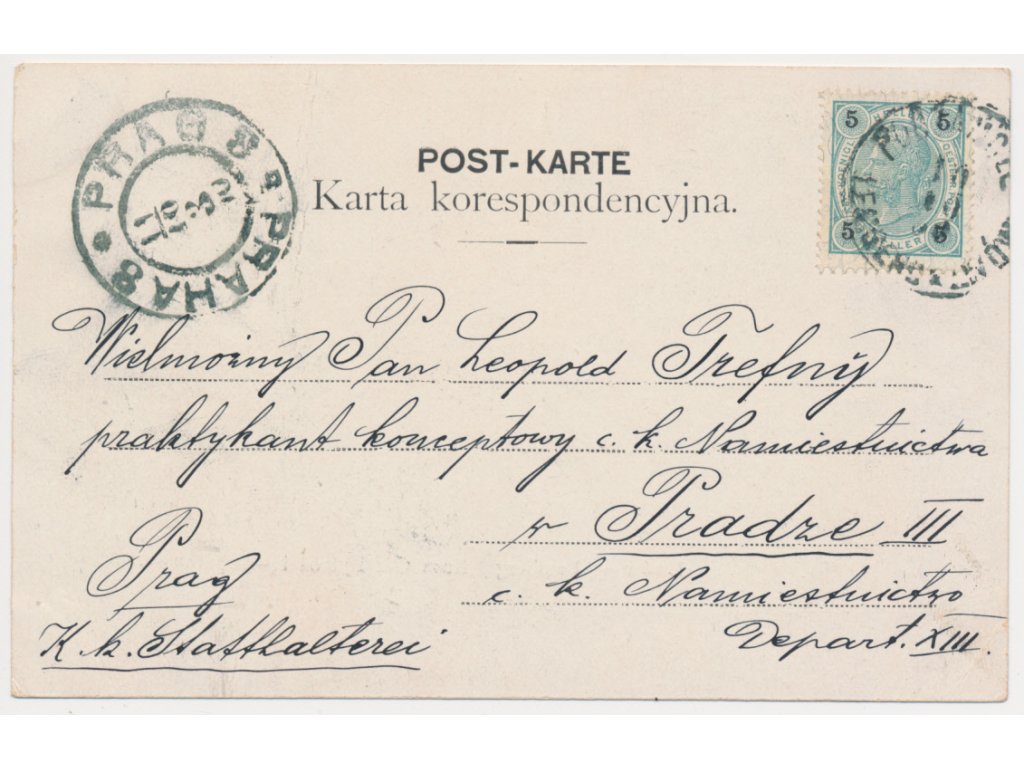 PRAG 8 * PRAHA 8 *
POST-KARTE
Karta korespondencyjna.
5 5
5 5
HELLER
Wielmożny Pan Leopold Trefný
praktykant konceptowy c. k. Namiestnictwa
w Pradze III
c. k. Namiestnictwo
Depart. XIII.
Prag
K. k. Statthalterei